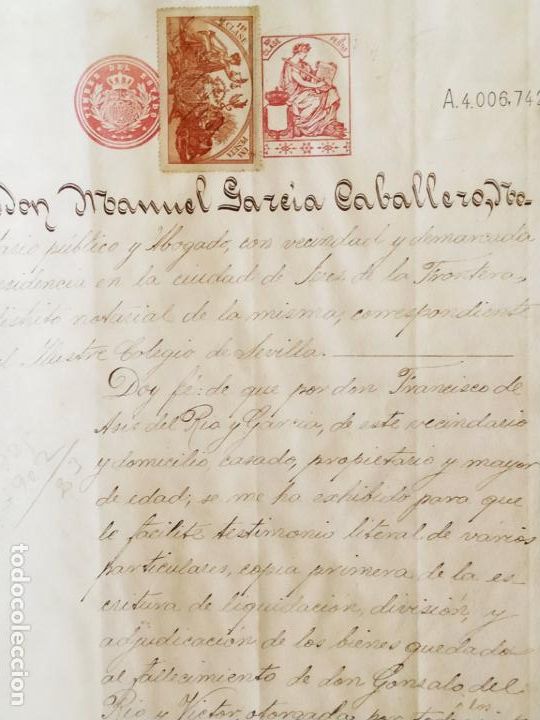 A.4.006.742
Don Manuel García Caballero, No-
tario público y Abogado, con vecindad y demarcada
residencia en la ciudad de Jerez de la Frontera,
distrito notarial de la misma, correspondiente
al Ilustre Colegio de Sevilla.
Doy fé: de que por don Francisco de
Asis del Rio y Garcia, de este vecindario
y domicilio, casado, propietario y mayor
de edad; se me ha exhibido para que
le facilite testimonio literal de varios
particulares, copia primera de la es-
critura de liquidación, división, y
adjudicación de los bienes quedados
al fallecimiento de don Gonzalo del
Rio y Victor, otorgada por
todocoleccion